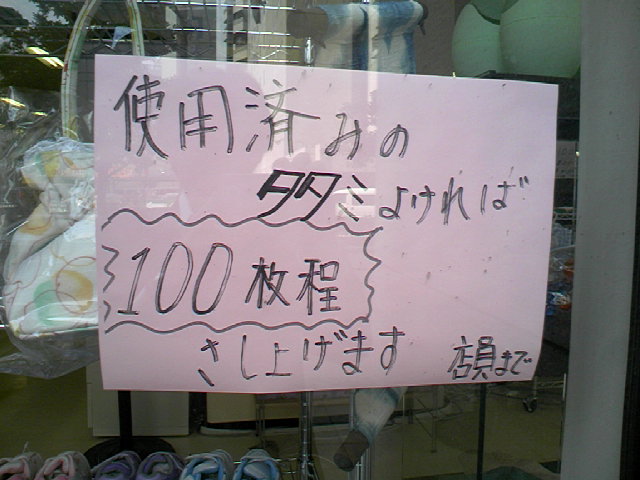 使用済みの
タタミよければ
100枚程
さし上げます
店員まで